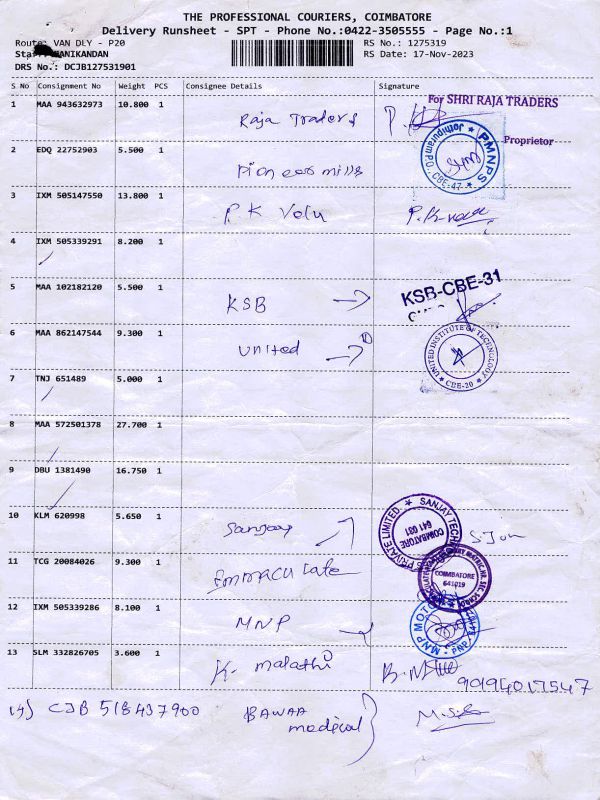 THE PROFESSIONAL COURIERS, COIMBATORE
Delivery Runsheet - SPT - Phone No.:0422-3505555 - Page No.:1
Route: VAN DLY - P20
RS No.: 1275319
MANIKANDAN
RS Date: 17-Nov-2023
DRS No.: DCJB127531901
S No Consignment No Weight PCS Consignee Details Signature
1 MAA 943632973 10.800 1 Raja Traders
For SHRI RAJA TRADERS
Proprietor
PMNPS
Jothipuram PO
CBE-47
2 EDQ 22752903 5.500 1 Pioneer mills
3 IXM 505147550 13.800 1 P.K Velu
4 IXM 505339291 8.200 1
5 MAA 102182120 5.500 1 KSB
KSB-CBE-31
6 MAA 862147544 9.300 1 United
UNITED INSTITUTE OF TECHNOLOGY
CBE-20
7 TNJ 651489 5.000 1
8 MAA 572501378 27.700 1
9 DBU 1381490 16.750 1
10 KLM 620998 5.650 1 Sanjay
SANJAY TECH
PRIVATE LIMITED
COIMBATORE
641 031
11 TCG 20084026 9.300 1 Immaculate
COIMBATORE
641019
12 IXM 505339286 8.100 1 MNP
MNP MOTO
13 SLM 332826705 3.600 1 K. Malathi
14) CJB 518437900 BAWAA
medical